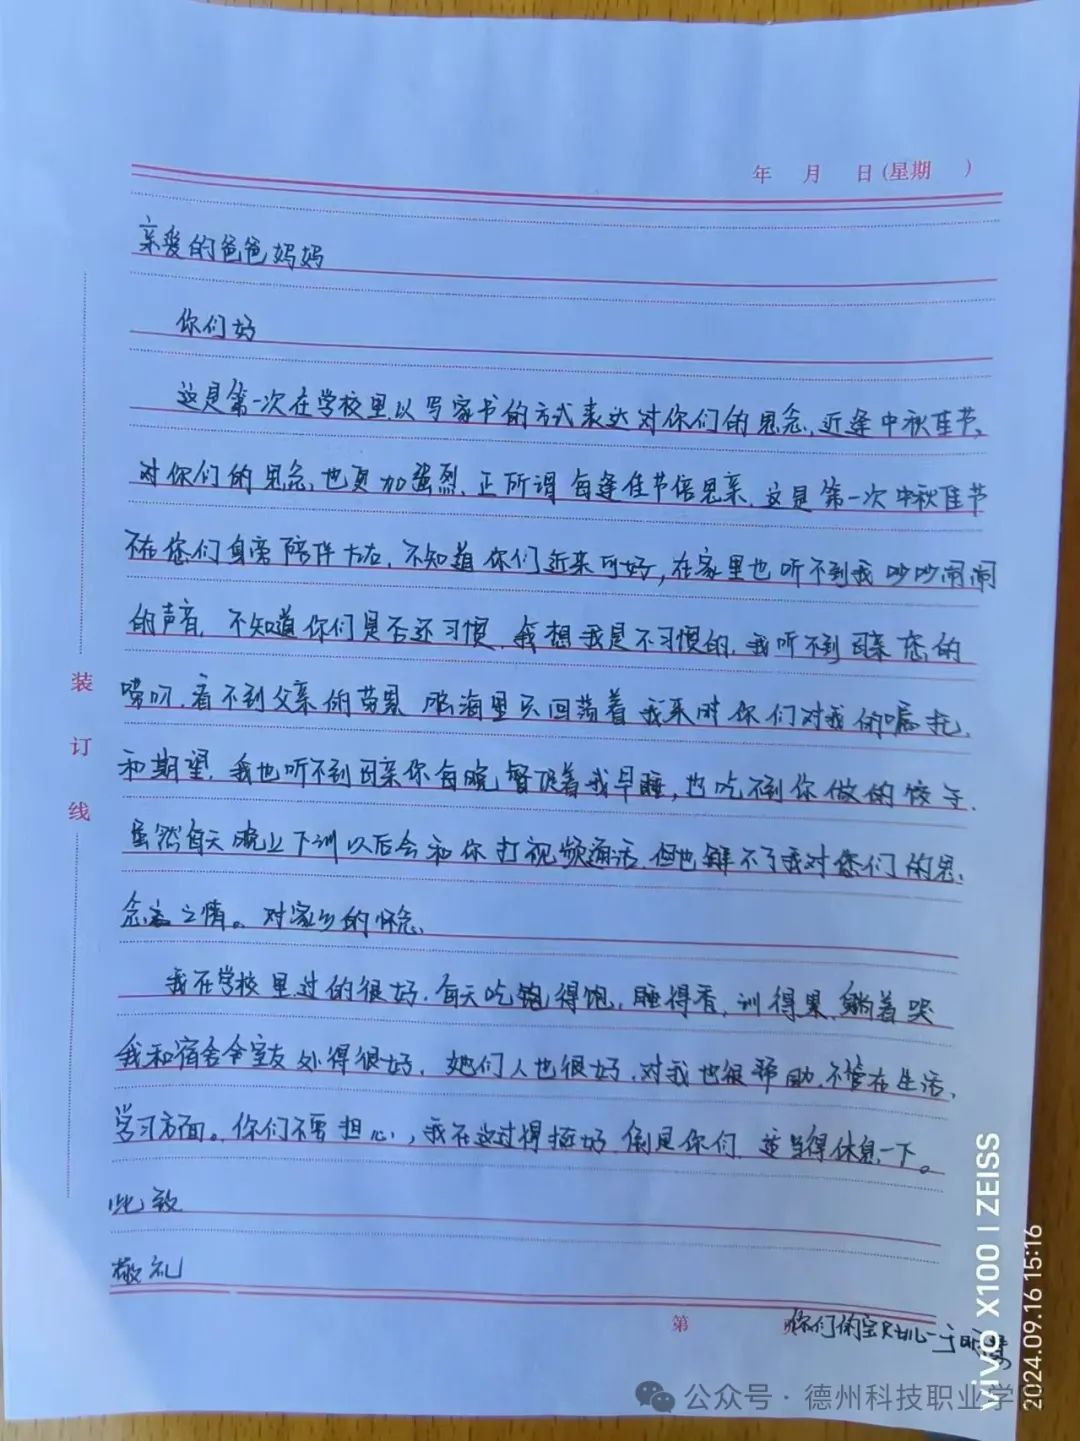 年 月 日(星期 )
亲爱的爸爸妈妈
你们好
这是第一次在学校里以写家书的方式表达对你们的思念,近逢中秋佳节,
对你们的思念,也更加强烈,正所谓每逢佳节倍思亲,这是第一次中秋佳节
不在您们身旁陪伴左右,不知道你们近来可好,在家里也听不到我吵吵闹闹
的声音,不知道你们是否还习惯,我想我是不习惯的,我听不到母亲您的
唠叨,看不到父亲的劳累 脑海里只回荡着我来时你们对我的嘱托,
和期望,我也听不到母亲你每晚督促着我早睡,也吃不到你做的饺子,
虽然每天晚上下训以后会和你打视频通话,但也解不了我对您们的思,
念之情。对家乡的怀念,
我在学校里过的很好,每天吃饱得饱,睡得香,训得累,躺着哭
我和宿舍令室友处得很好,她们人也很好,对我也很帮助,不管在生活,
学习方面。你们不要担心,我在这过得挺好,倒是你们 适当得休息一下。
此致
敬礼
第
你们的宝贝女儿一于
装
订
线
vivo X100 | ZEISS
2024.09.16 15:16
公众号·德州科技职业学